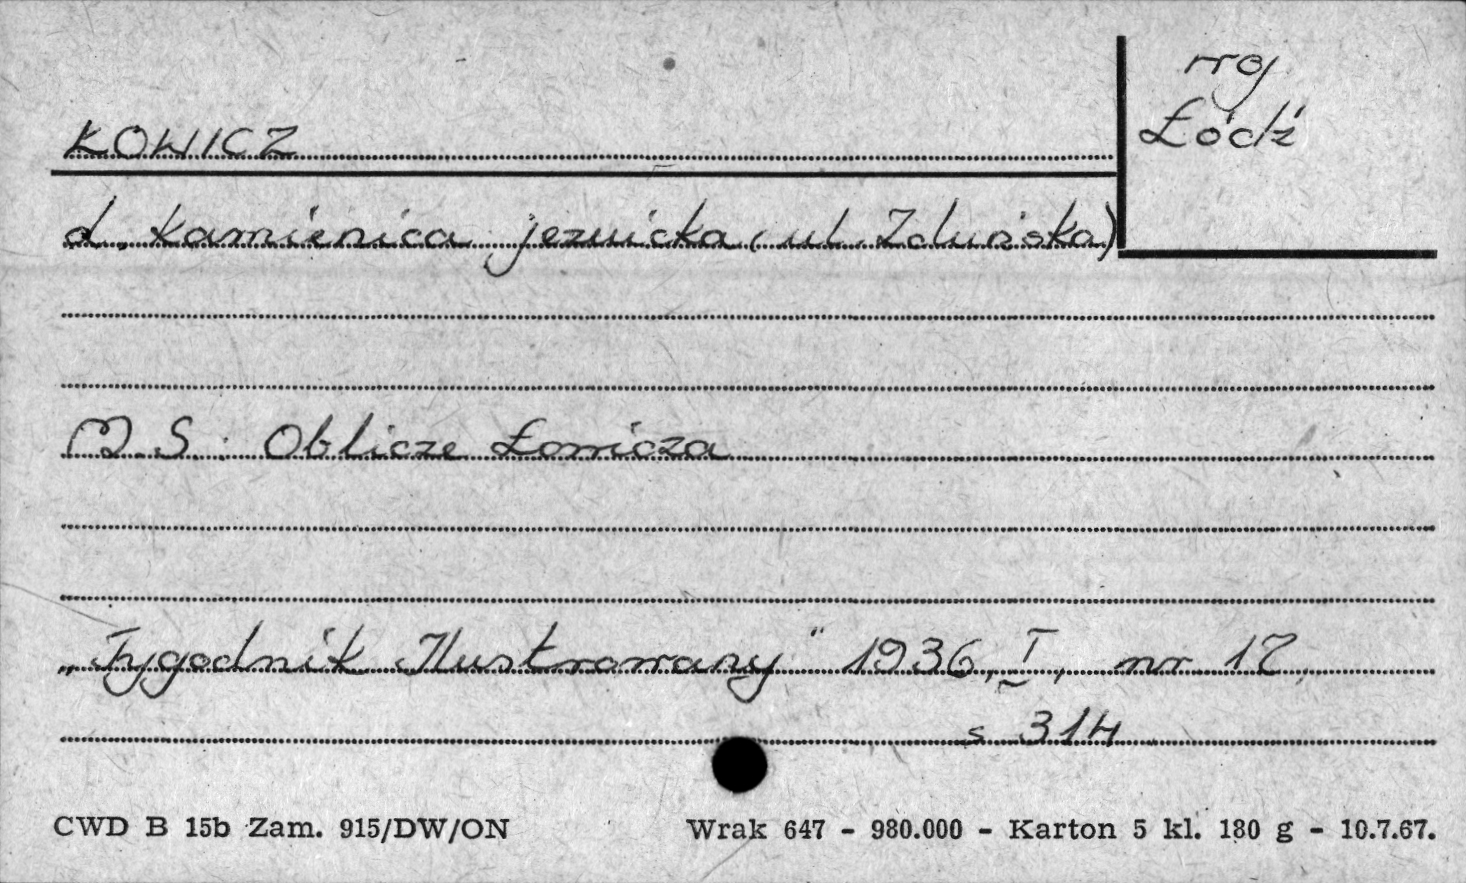 woj
Łódź
ŁOWICZ
d. kamienica jezuicka (ul. Zduńska)
M.S.: Oblicze Łowicza
„Tygodnik Ilustrowany" 1936, I, nr 17,
s 314
CWD B 15b Zam. 915/DW/ON Wrak 647 - 980.000 - Karton 5 kl. 180 g - 10.7.67.